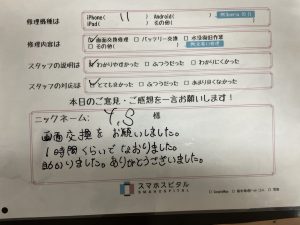 修理機種は iPhone( 11 ) Android( )
iPad( ) その他( )
修理内容は ☑画面交換修理 □バッテリー交換 □水没復旧作業
□その他( )
スタッフの説明は ☑わかりやすかった □ふつうだった □わかりにくかった
スタッフの対応は ☑とても良かった □ふつうだった □あまり良くなかった
本日のご意見・ご感想を一言お願いします！
ニックネーム: Y,S 様
画面交換をお願いしました。
1時間くらいでなおりました。
助かりました。ありがとうございました。
スマホスピタル
SMAHOSPITAL